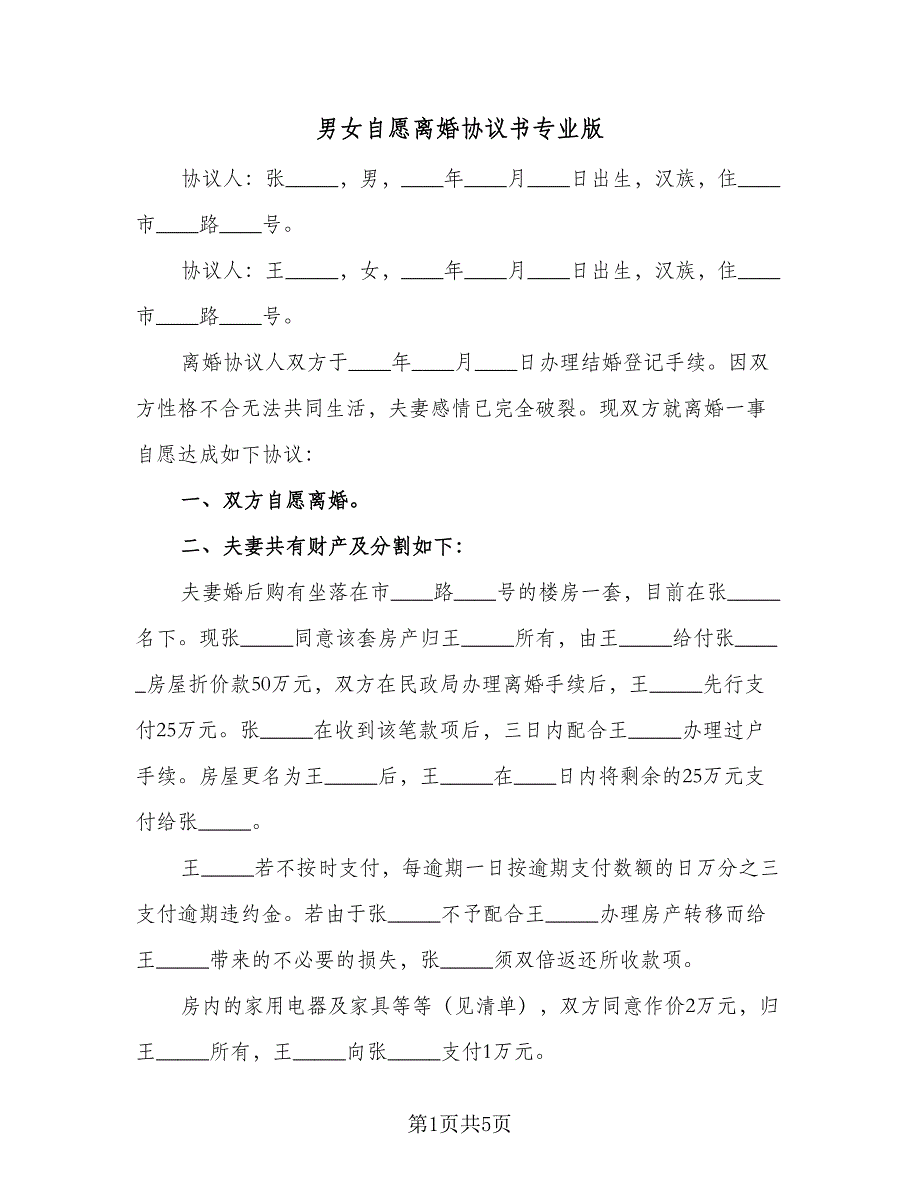 男女自愿离婚协议书专业版
协议人：张_____，男，____年____月____日出生，汉族，住____
市____路____号。
协议人：王_____，女，____年____月____日出生，汉族，住____
市____路____号。
离婚协议人双方于____年____月____日办理结婚登记手续。因双
方性格不合无法共同生活，夫妻感情已完全破裂。现双方就离婚一事
自愿达成如下协议：
一、双方自愿离婚。
二、夫妻共有财产及分割如下：
夫妻婚后购有坐落在市____路____号的楼房一套，目前在张_____
名下。现张_____同意该套房产归王_____所有，由王_____给付张____
_房屋折价款50万元，双方在民政局办理离婚手续后，王_____先行支
付25万元。张_____在收到该笔款项后，三日内配合王_____办理过户
手续。房屋更名为王_____后，王_____在____日内将剩余的25万元支
付给张_____。
王_____若不按时支付，每逾期一日按逾期支付数额的日万分之三
支付逾期违约金。若由于张_____不予配合王_____办理房产转移而给
王_____带来的不必要的损失，张_____须双倍返还所收款项。
房内的家用电器及家具等等（见清单），双方同意作价2万元，归
王_____所有，王_____向张_____支付1万元。
第1页共5页